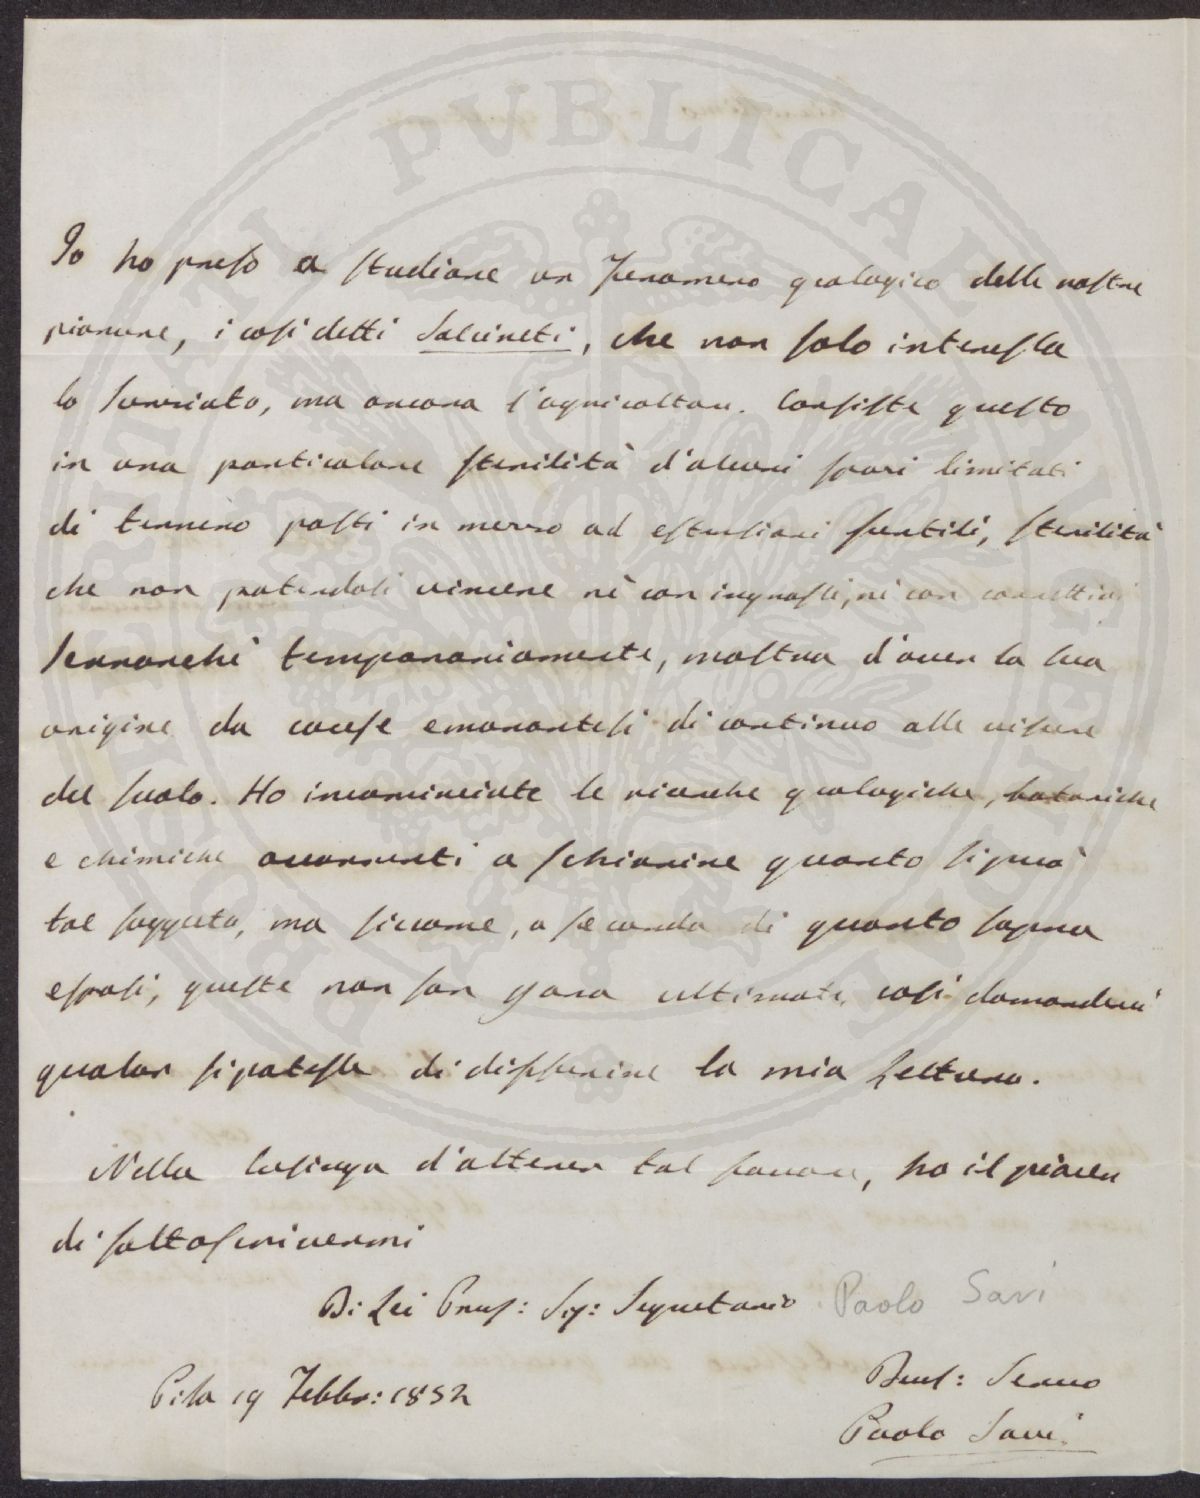 Io ho preso a studiare un Fenomeno geologico delle nostre
pianure, i così detti Salcineti, che non solo interessa
lo Scenziato, ma ancora l'agricoltore. Consiste questo
in una particolare sterilità d'alcuni spazi limitati
di terreno posti in mezzo ad estensioni fertili, sterilità
che non potendosi vincere nè con ingrassi, nè con correttivi
sennonchè temporariamente, mostra d'aver la sua
origine da cause emanantesi di continuo alle viscere
del suolo. Ho incominciate le ricerche geologiche, botaniche
e chimiche occorrenti a schiarire quanto si può
tal soggetto, ma siccome, a seconda di quanto sopra
esposi, queste non son gara ultimate, così domanderei
qualor si potesse di differire la mia Lettura.
Nella lusinga d'ottener tal favore, ho il piacer
di sottoscrivermi
Di Lei Preg: Sig: Segretario Paolo Savi
Pisa 19 Febbr: 1852
Dev: Servo
Paolo Savi.
POSNANIENSIS PVBLICAE